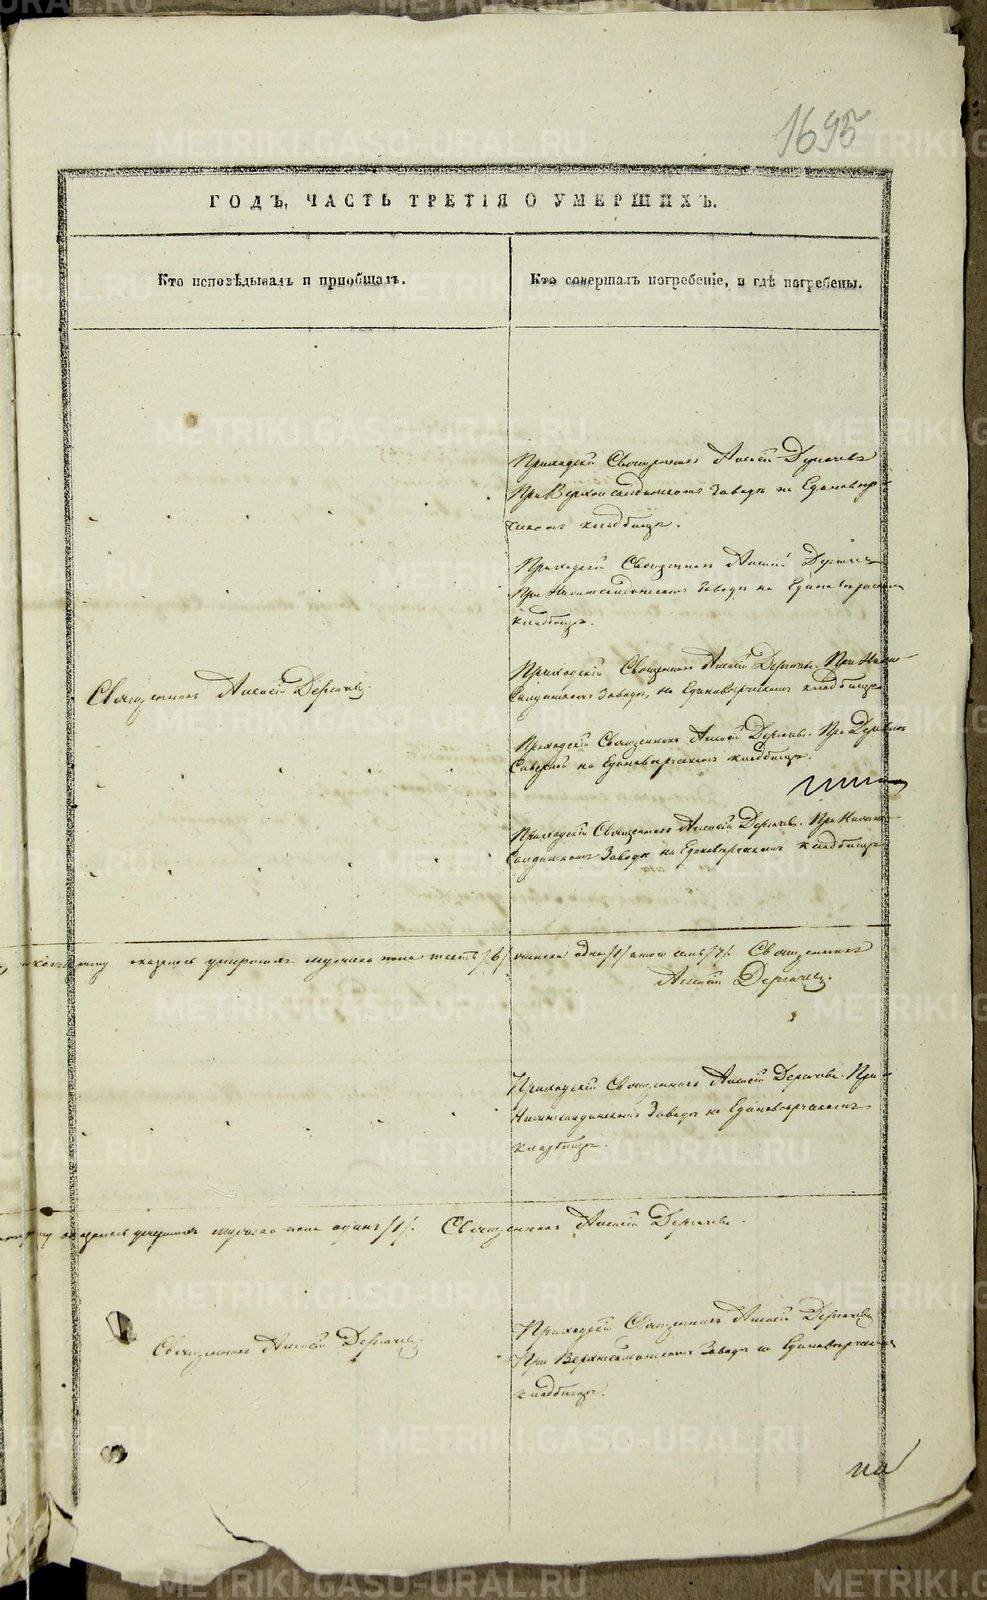 1695
ГОДЪ, ЧАСТЬ ТРЕТІЯ О УМЕРШИХЪ.
Кто исповѣдывалъ и приобщалъ.
Кто совершалъ погребеніе, и гдѣ погребены.
Приходскій Священникъ Алексѣй Дергачевъ
При Верхнесалдинскомъ Заводѣ на Единовѣр-
ческомъ кладбищѣ.
Приходскій Священникъ Алексѣй Дергачевъ
При Нижнесалдинскомъ Заводѣ на Единовѣрческомъ
кладбищѣ.
Священникъ Алексѣй Дергачевъ.
Приходскій Священникъ Алексѣй Дергачевъ. При Нижне-
Салдинскомъ Заводѣ, на Единовѣрческомъ кладбищѣ
Приходскій Священникъ Алексѣй Дергачевъ. При Деревнѣ
на Единовѣрческомъ кладбищѣ.
Приходскій Священникъ Алексѣй Дергачевъ. При Нижне-
Салдинскомъ Заводѣ на Единовѣрческомъ кладбищѣ
умершихъ мужеска пола шесть /6/ женска одна /1/ а того семь /7/. Священникъ
Алексѣй Дергачевъ.
Приходскій Священникъ Алексѣй Дергачевъ. При
Нижнесалдинскомъ Заводѣ на Единовѣрческомъ
кладбищѣ.
умершихъ мужеска пола одинъ /1/. Священникъ Алексѣй Дергачевъ.
Священникъ Алексѣй Дергачевъ.
Приходскій Священникъ Алексѣй Дергачевъ
При Верхнесалдинскомъ Заводѣ на Единовѣрческомъ
кладбищѣ.
на
METRIKI.GASO-URAL.RU